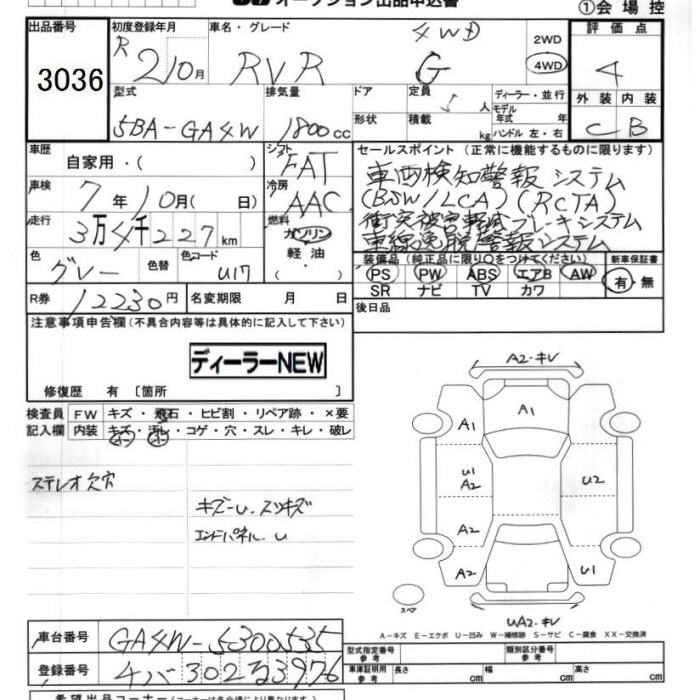 オークション出品申込書
①会場控
出品番号
3036
初度登録年月
R 2/0月
車名・グレード
RVR
4WD
G
2WD
4WD
評価点
4
外装 内装
C B
型式
5BA-GA4W
排気量
1800cc
ドア
形状
定員 5人
積載 kg
ディーラー・並行
モデル年式 年
ハンドル 左・右
車歴
自家用・( )
シフト
FAT
セールスポイント(正常に機能するものに限ります)
車両検知警報システム
(BSW/LCA)(RCTA)
衝突被害軽減ブレーキシステム
車線逸脱警報システム
車検
7年10月( 日)
冷房
AAC
走行
3万4千227km
燃料
ガソリン
軽油・
( )
色
グレー
色替
色コード
U17
装備品(純正品に限り○をつけてください)
PS PW ABS エアB AW
SR ナビ TV カワ
新車保証書
有・無
R券 12230円
名変期限 月 日
後日品
注意事項申告欄(不具合内容等は具体的に記入して下さい)
ディーラーNEW
修復歴 有〔箇所 〕
検査員記入欄
FW キズ・飛石・ヒビ割・リペア跡・×要
内装 キズ・汚レ・コゲ・穴・スレ・キレ・破レ
小 小
ステレオ欠穴
キズ・U・スリキズ
エンドパネル U
A2-キレ
A1
A1
U1
A2
U2
A2
A2
U1
スペア
UA2-キレ
A-キズ E-エクボ U-凹み W-補修跡 S-サビ C-腐食 XX-交換済
車台番号
GA4W-5300535
登録番号
4バ302る3976
型式指定番号
参考
類別区分番号
参考
車庫証明用
参考
長さ cm
幅 cm
高さ cm
希望出品コーナー(コーナー名は各会場により異なります)